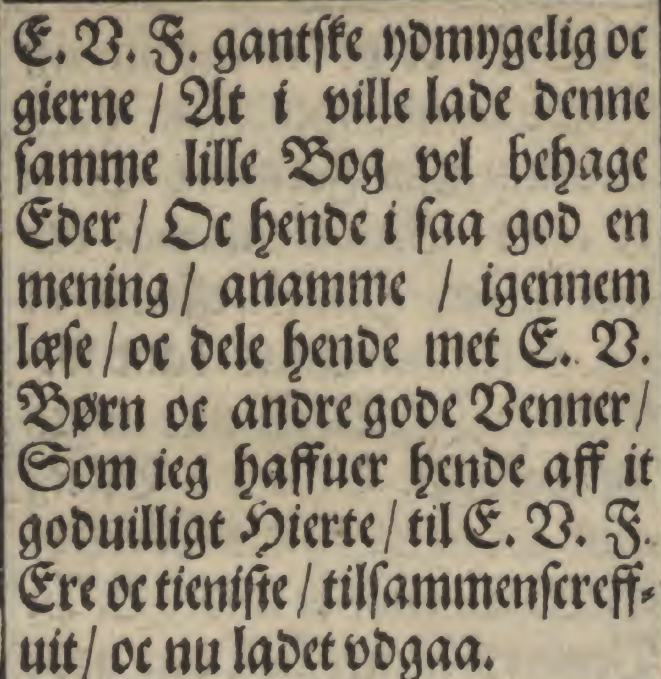 E. V. F. gantske ydmygelig oc
gierne / At i ville lade denne
samme lille Bog vel behage
Eder / Oc hende i saa god en
mening / anamme / igennem
læse / oc dele hende met E. V.
Børn oc andre gode Venner /
Som ieg haffuer hende aff it
goduilligt Hierte / til E. V. F.
Ere oc tieniste / tilsammenscreff-
uit / oc nu ladet vdgaa.